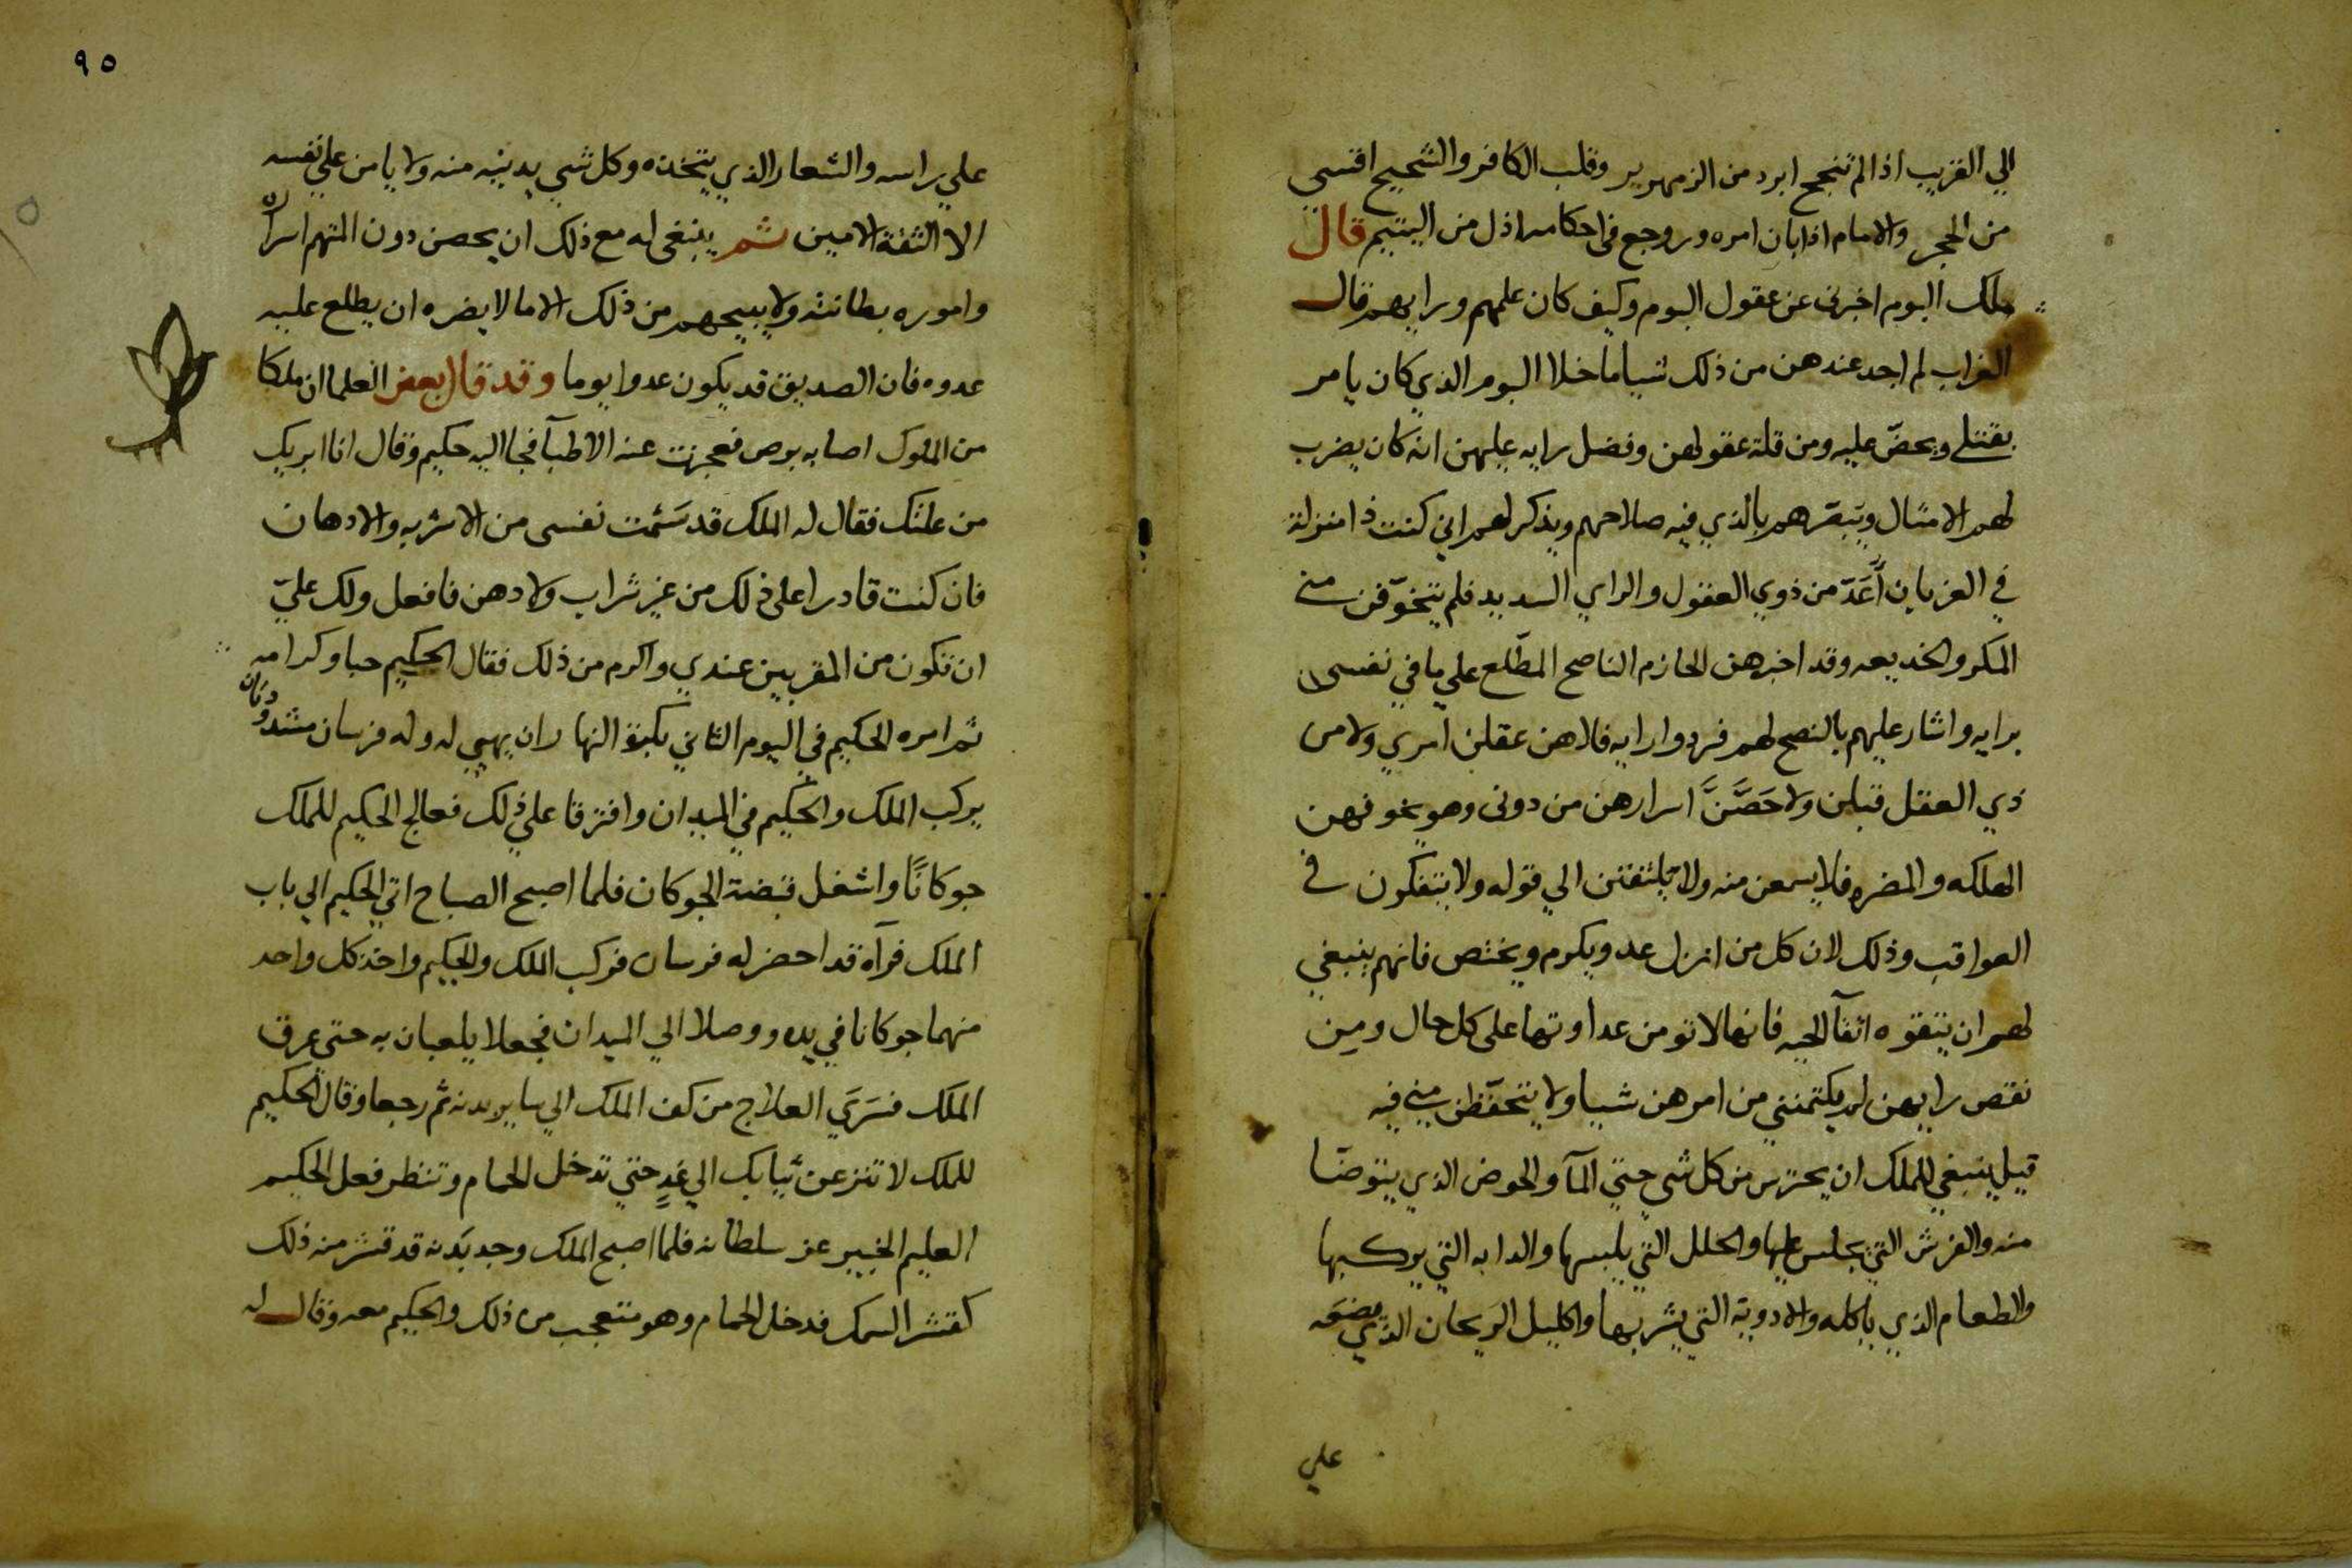 الي القريب اذا لم تنجح ابرد من الزمهرير وقلب الكافر والشحيح اقسي
من الحجر والامام اذا بان امره وروجع في احكامه اذل من اليتيم قال
ملك البوم اخبرني عن عقول البوم وكيف كان علمهم ورايهم قال
الغراب لم اجد عندهن من ذلك شيا ما خلا البوم الذي كان يامر
بقتلي ويحضّ عليه ومن قلة عقولهن وفضل رايه عليهن انه كان يضرب
لهم الامثال ويبصّرهم بالذي فيه صلاحهم ويذكر لهم اني كنت ذا منزلة
في الغربان أُعَدّ من ذوي العقول والراي السديد فلم يتخوّفن مني
المكر والخديعه وقد اخبرهن الحازم الناصح المطّلع علي ما في نفسي
برايه واشار عليهم بالنصح لهم فردوا رايه فلا هن عقلن امري ولا من
ذي العقل قبلن ولا حَصَّنَّ اسرارهن من دوني وهو يخوفهن
الهلكه والمضره فلا يسمعن منه ولا يلتفتن الي قوله ولا يتفكرن في
العواقب وذلك لان كل من انزل عدو ويكرم ويختص فانهم ينبغي
لهم ان يتقوه اتقآ الحيه فانها لا تومن عداوتها على كل حال ومن
نقص رايهن لم يكتمنني من امرهن شيا ولا يتحفّظن مني فيه
قيل ينبغي للملك ان يحترس من كل شي حتي المآ والحوض الذي يتوضّا
منه والفرش التي يجلس عليها والحلل التي يلبسها والدابه التي يركبها
والطعام الذي ياكله والادوية التي يشربها واكليل الريحان الذي يضعه
علي
٩٥
علي راسه والشعار الذي يتخذه وكل شي يدنيه منه ولا يامن علي نفسه
الا الثقة الامين ثم ينبغي له مع ذلك ان يحصن دون المتهم اسراره
واموره بطانته ولا يبيحهم من ذلك الا ما لا يضره ان يطلع عليه
عدوه فان الصديق قد يكون عدوا يوما وقد قال بعض العلما ان ملكا
من الملوك اصابه برص فعجزت عنه الاطبآ فجا اليه حكيم وقال انا ابريك
من علتك فقال له الملك قد سَئمت نفسي من الاشربه والادهان
فان كنت قادرا على ذلك من غير شراب ولا دهن فافعل ولك عليّ
ان تكون من المقربين عندي واكرم من ذلك فقال الحكيم حبا وكرامه
ثم امره الحكيم في اليوم الثاني بكرة النهار ان يهيي له وله فرسان مشدودتان
يركب الملك والحكيم في الميدان وافترقا علي ذلك فعالج الحكيم للملك
جوكانًا واشغل قبضة الجوكان فلما اصبح الصباح اتي الحكيم الي باب
الملك فرآه قد احضر له فرسان فركب الملك والحكيم واخذ كل واحد
منهما جوكانا في يده ووصلا الي الميدان فجعلا يلعبان به حتي عرق
الملك فسَرَي العلاج من كف الملك الي ساير بدنه ثم رجعا وقال الحكيم
للملك لا تنزعن ثيابك الي غدٍ حتي تدخل الحمام وتنظر فعل الحكيم
العليم الخبير عز سلطانه فلما اصبح الملك وجد بَدنه قد قشر منه ذلك
كقشر السمك فدخل الحمام وهو متعجب من ذلك والحكيم معه وقال له